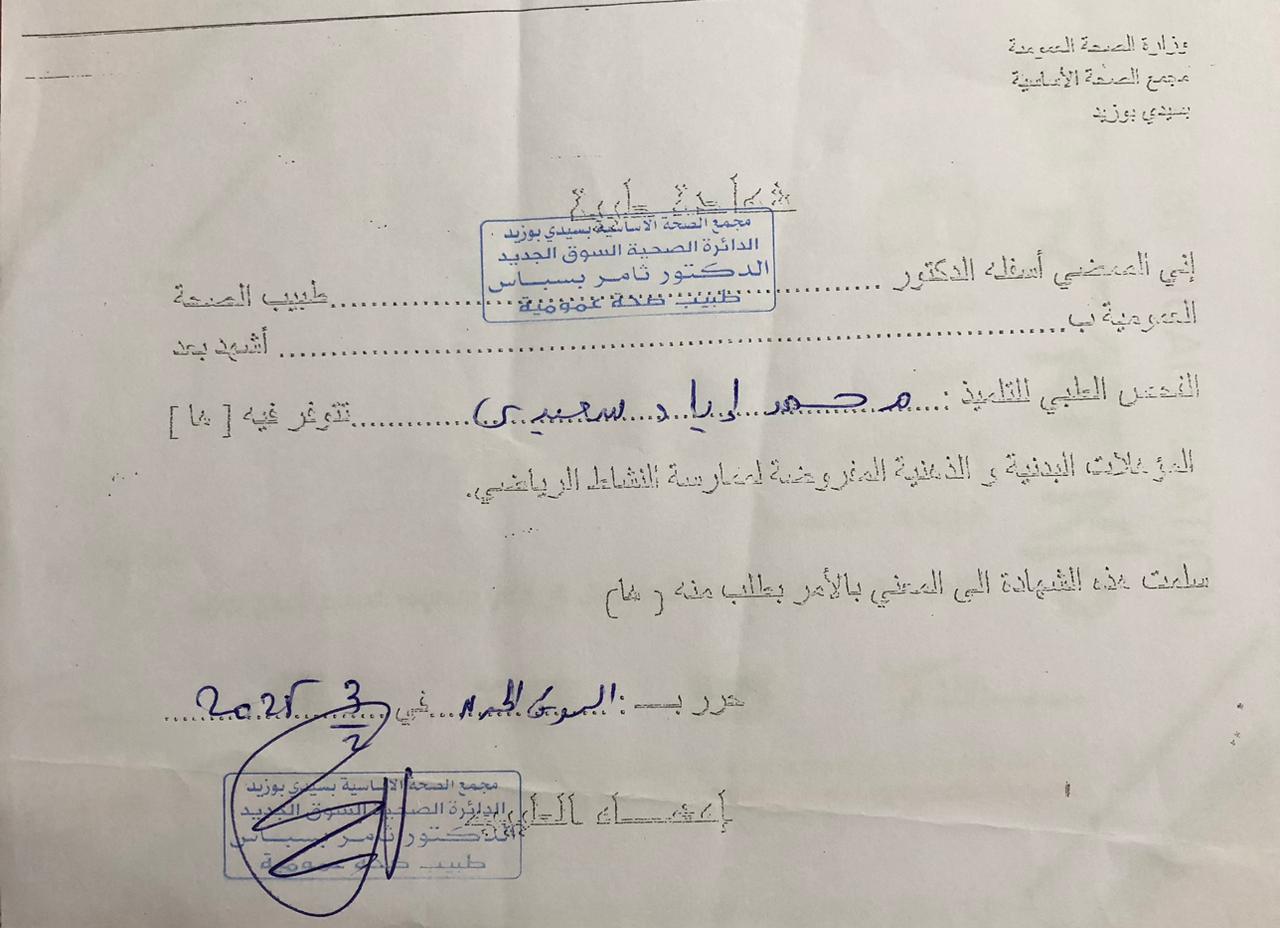 وزارة الصحة العمومية
مجمع الصحة الأساسية
بسيدي بوزيد
شهادة طبية
مجمع الصحة الاساسية بسيدي بوزيد
الدائرة الصحية السوق الجديد
الدكتور ثامر بسباس
طبيب صحة عمومية
إني الممضي أسفله الدكتور ........ طبيب الصحة
العمومية ب ........ أشهد بعد
الفحص الطبي للتلميذ : محمد إياد سعيدي ........ تتوفر فيه [ ها ]
المؤهلات البدنية و الذهنية المفروضة لممارسة النشاط الرياضي.
سلمت هذه الشهادة الى المعني بالأمر بطلب منه ( ها )
حرر بـ : السوق الجديد في 3/2 2025
إمضاء الطبيب
مجمع الصحة الاساسية بسيدي بوزيد
الدائرة الصحية السوق الجديد
الدكتور ثامر بسباس
طبيب صحة عمومية